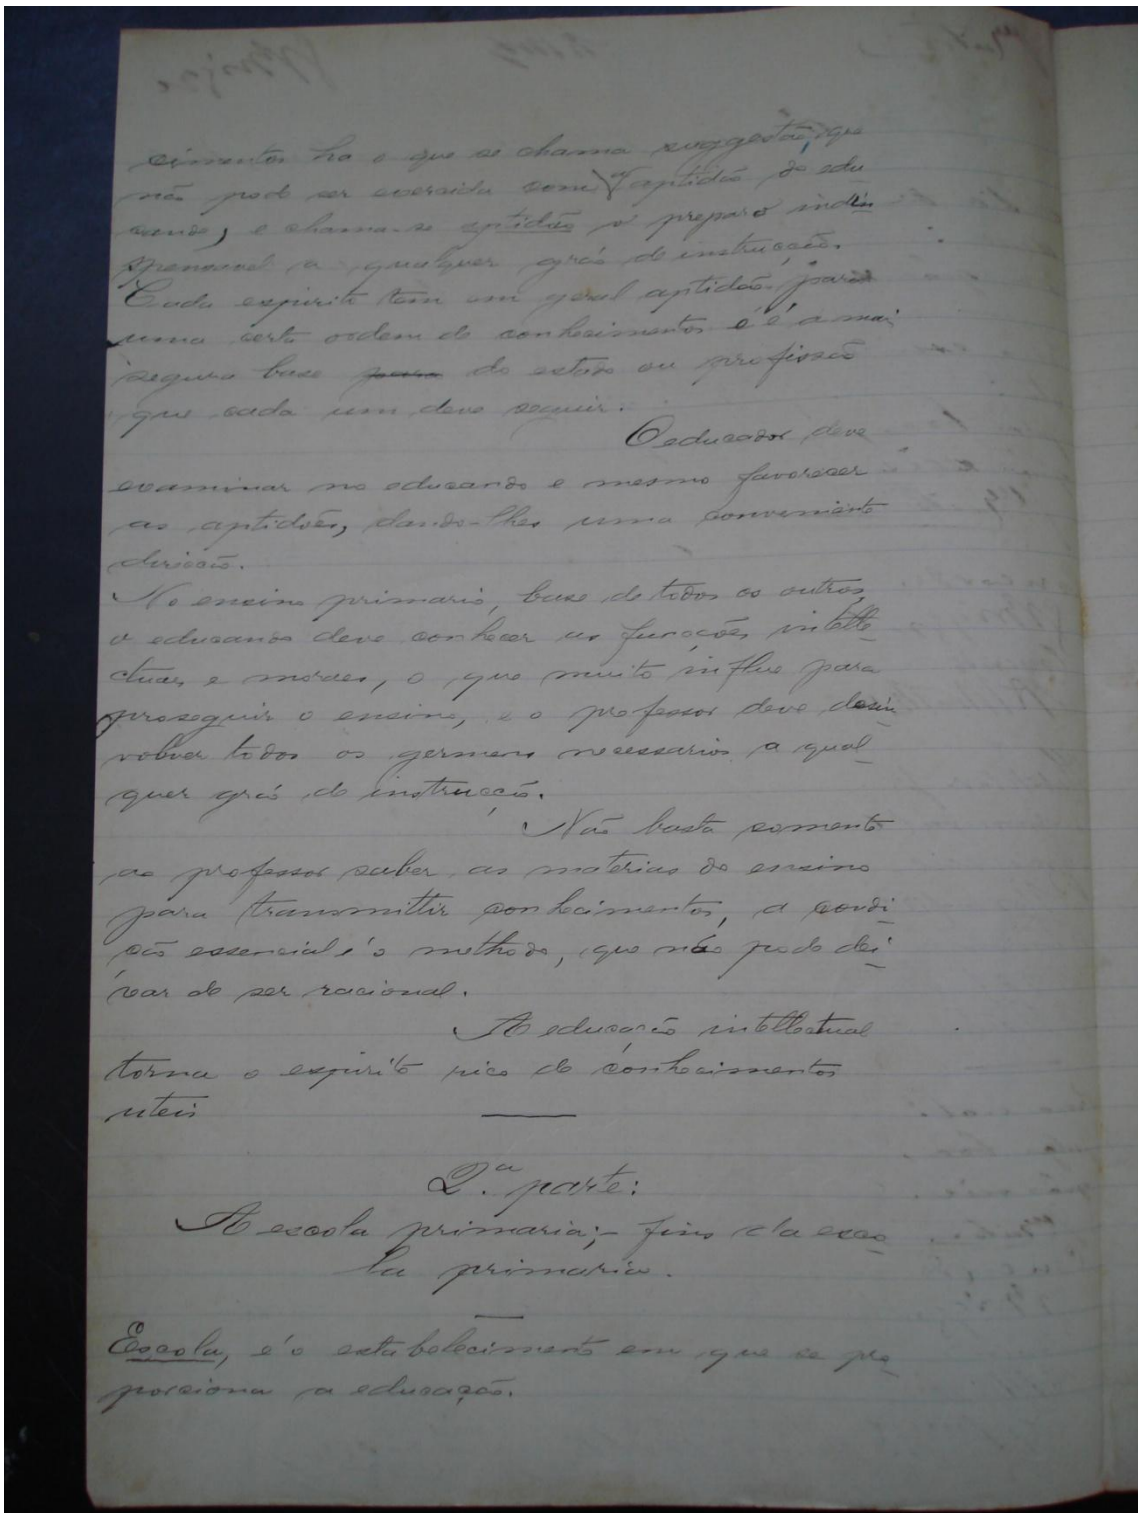 cimentos ha o que se chama suggestão, que
não pode ser exercida com a aptidão do edu
cando, e chama-se aptidão o preparo indis
pensavel a qualquer gráo de instrucção.
Cada espirito tem em geral aptidão para
uma certa ordem de conhecimentos e é a mais
segura base para do estado ou profissão
que cada um deve seguir.
O educador deve
examinar no educando e mesmo favorecer
as aptidões, dando-lhes uma conveniente
direcção.
No ensino primario, base de todos os outros,
o educando deve conhecer as funcções intelle-
ctuaes e moraes, o que muito influe para
proseguir o ensino, e o professor deve desin
volver todos os germens necessarios a qual-
quer gráo de instrucção.
Não basta somente
ao professor saber as materias do ensino
para transmittir conhecimentos, a condi-
cão essencial é o methodo, que não pode dei-
xar de ser racional.
A educação intellectual
torna o espirito rico de conhecimentos
uteis
2.ª parte:
A escola primaria; - fins da esco-
la primaria.
Escola, é o estabelecimento em que se pro
porciona a educação.